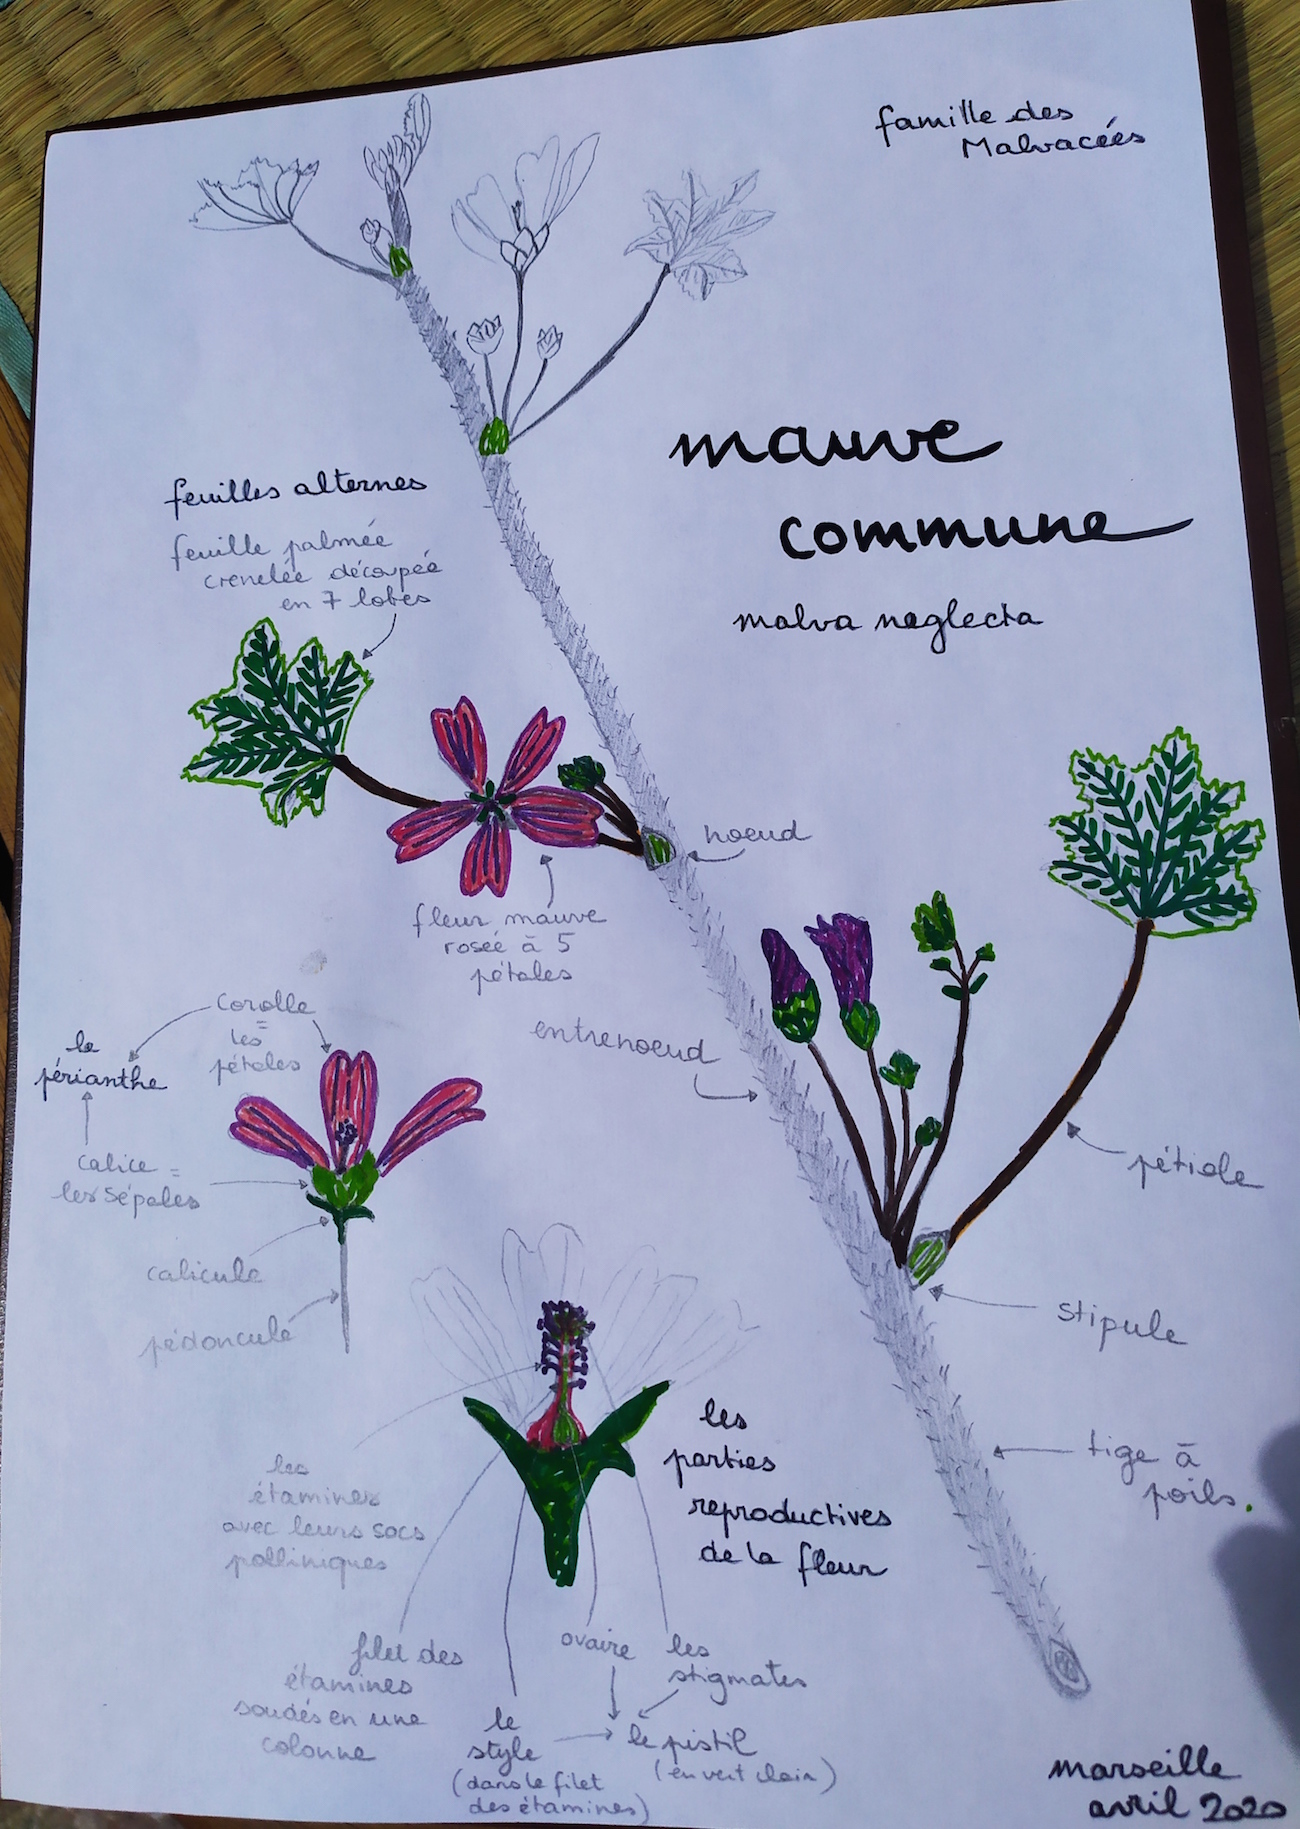 famille des
Malvacées
mauve
commune
malva neglecta
feuilles alternes
feuille palmée
crenelée découpée
en 7 lobes
noeud
fleur mauve
rosée à 5
pétales
entrenoeud
corolle
=
les
pétales
le
périanthe
calice =
les sépales
calicule
pédoncule
pétiole
stipule
tige à
poils.
les
parties
reproductives
de la fleur
les
étamines
avec leurs sacs
polliniques
filet des
étamines
soudés en une
colonne
le
style
(dans le filet
des étamines)
ovaire
les
stigmates
le pistil
(en vert clair)
marseille
avril 2020